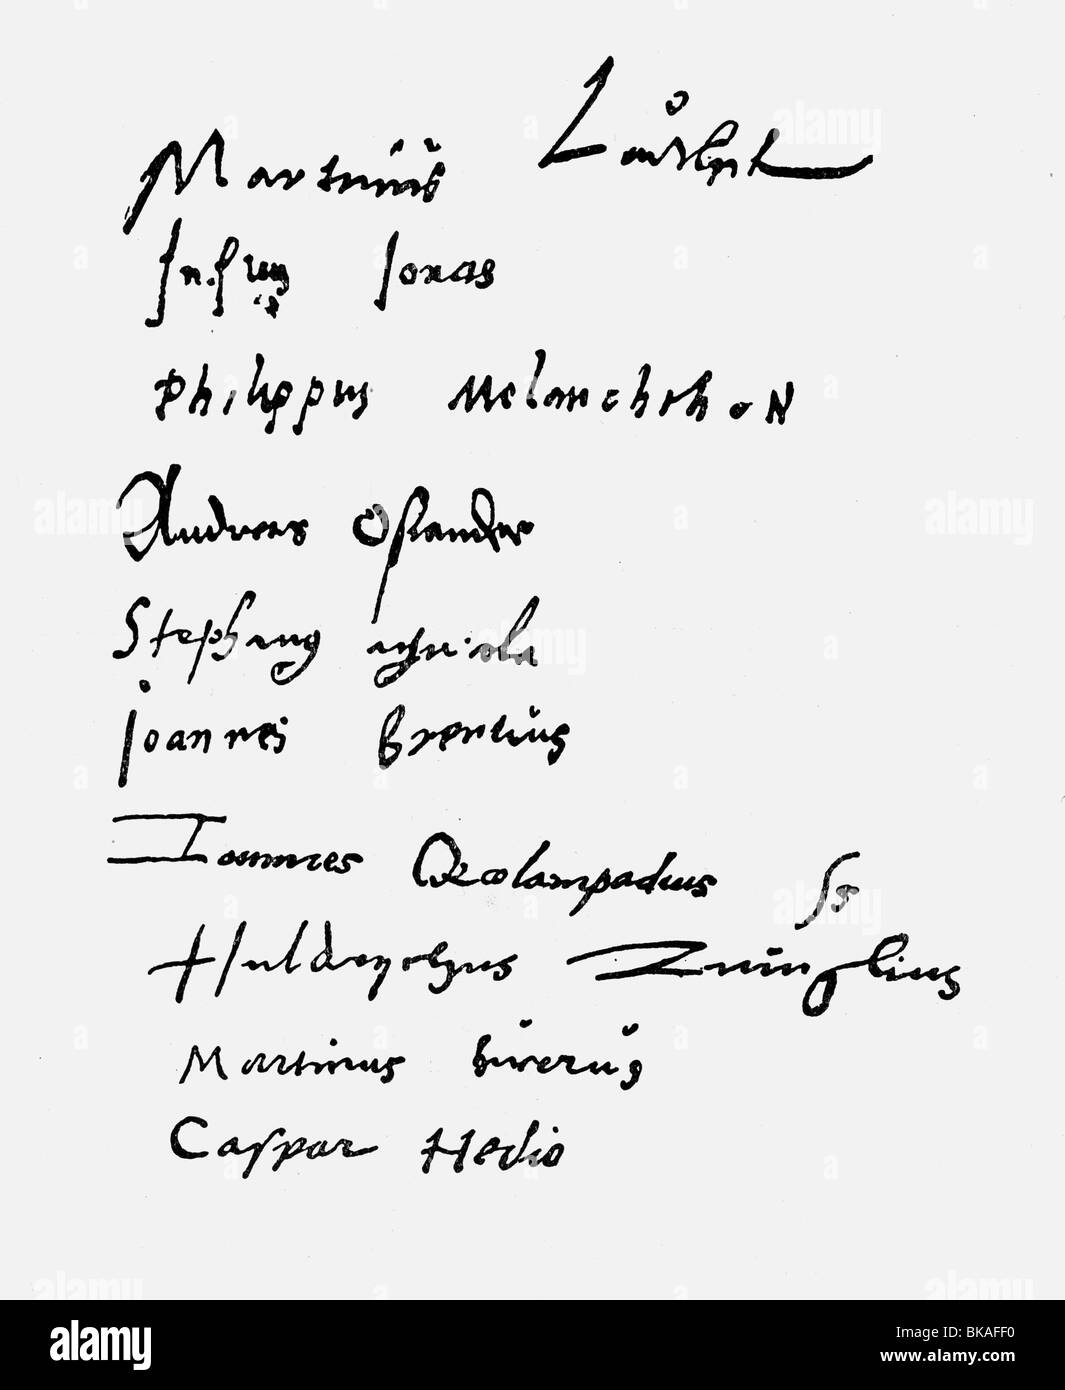 Martinus Luther
Justus Jonas
Philippus Melanchthon
Andreas Osiander
Stephanus agricola
Joannes Brentius
Ioannes Oecolampadius ss
Huldrychus Zuinglius
Martinus bucerus
Caspar Hedio
alamy
Image ID: BKAFF0
www.alamy.com